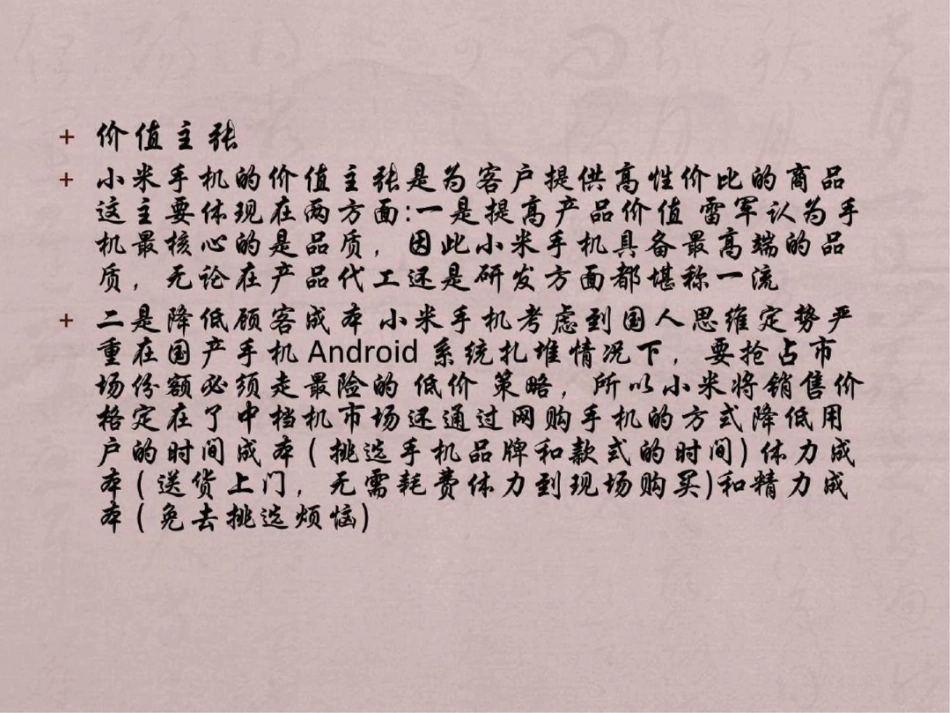 + 价值主张
+ 小米手机的价值主张是为客户提供高性价比的商品
这主要体现在两方面:一是提高产品价值 雷军认为手
机最核心的是品质，因此小米手机具备最高端的品
质，无论在产品代工还是研发方面都堪称一流
+ 二是降低顾客成本 小米手机考虑到国人思维定势严
重在国产手机 Android 系统扎堆情况下，要抢占市
场份额必须走最险的 低价 策略，所以小米将销售价
格定在了中档机市场还通过网购手机的方式降低用
户的时间成本（挑选手机品牌和款式的时间)体力成
本(送货上门，无需耗费体力到现场购买)和精力成
本(免去挑选烦恼)